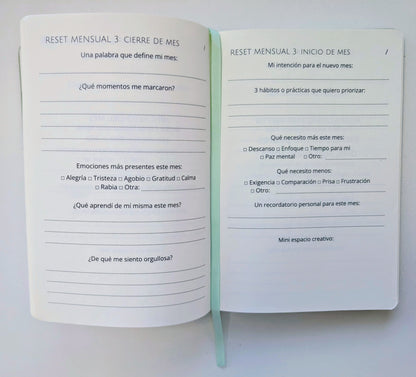 RESET MENSUAL 3: CIERRE DE MES
/
Una palabra que define mi mes:
¿Qué momentos me marcaron?
Emociones más presentes este mes:
□ Alegría □ Tristeza □ Agobio □ Gratitud □ Calma
□ Rabia □ Otra:
¿Qué aprendí de mí misma este mes?
¿De qué me siento orgullosa?
RESET MENSUAL 3: INICIO DE MES
/
Mi intención para el nuevo mes:
3 hábitos o prácticas que quiero priorizar:
Qué necesito más este mes:
□ Descanso □ Enfoque □ Tiempo para mí
□ Paz mental □ Otro:
Qué necesito menos:
□ Exigencia □ Comparación □ Prisa □ Frustración
□ Otro:
Un recordatorio personal para este mes:
Mini espacio creativo: